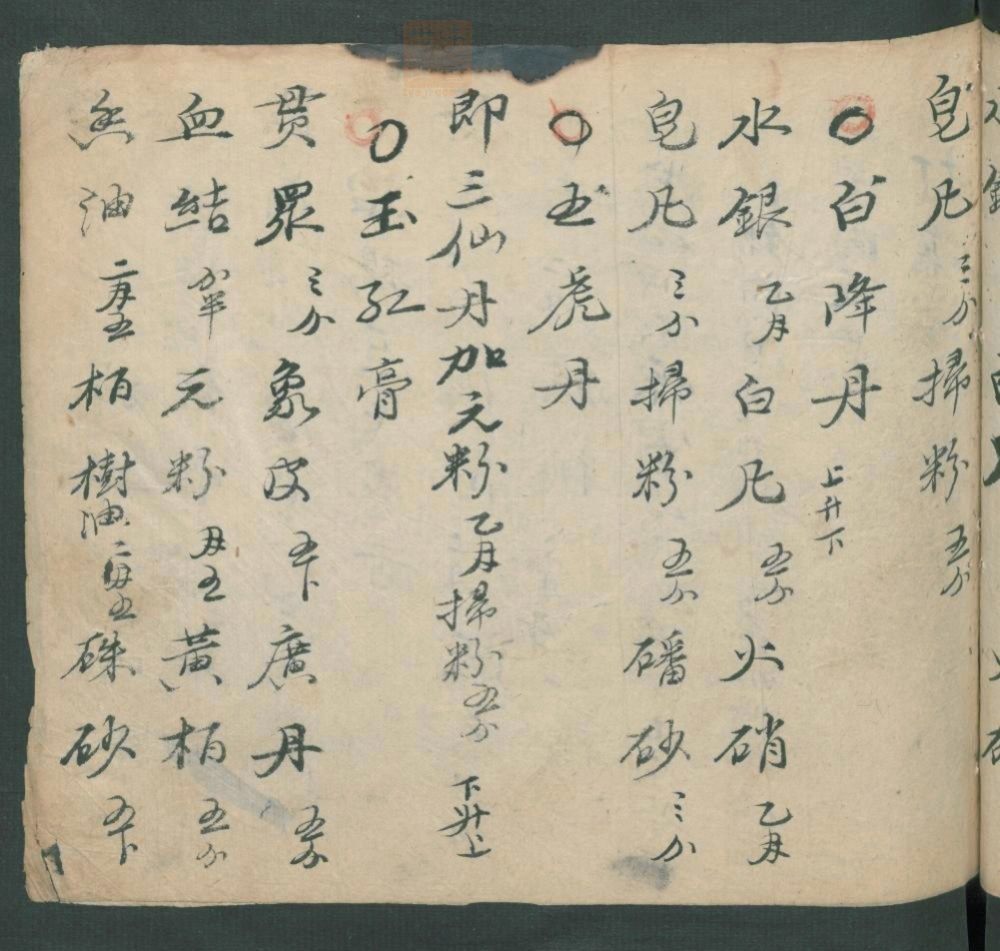 皂凡三分掃粉五分
白降丹上升下
水銀乙月白凡五分火硝乙月
皂凡三分掃粉五分磻砂三分
五虎丹
即三仙丹加元粉乙月掃粉五分下升上
玉红膏
贯眾三分象皮五卜廣丹五分
血結分半元粉五黃栢五分
油二五栢樹油二五硃砂五卜